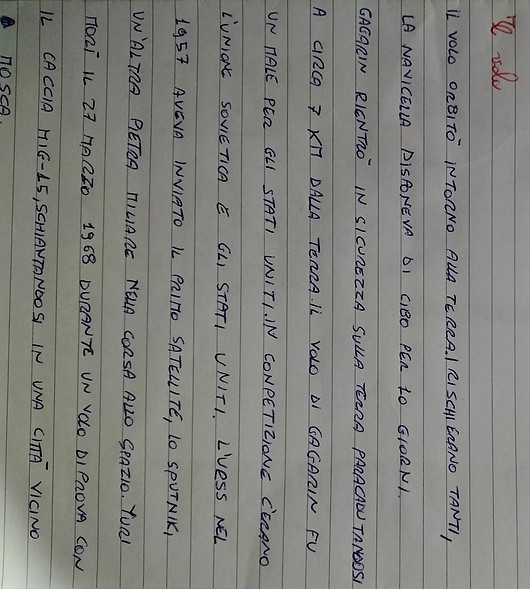 Il volo
IL VOLO ORBITÒ INTORNO ALLA TERRA. I RISCHI ERANO TANTI,
LA NAVICELLA DISPONEVA DI CIBO PER 10 GIORNI.
GAGARIN RIENTRÒ IN SICUREZZA SULLA TERRA PARACADUTANDOSI
A CIRCA 7 KM DALLA TERRA. IL VOLO DI GAGARIN FU
UN MALE PER GLI STATI UNITI. IN COMPETIZIONE C'ERANO
L'UNIONE SOVIETICA E GLI STATI UNITI. L'URSS NEL
1957 AVEVA INVIATO IL PRIMO SATELLITE, LO SPUTNIK,
UN'ALTRA PIETRA MILIARE NELLA CORSA ALLO SPAZIO. YURI
MORÌ IL 27 MARZO 1968 DURANTE UN VOLO DI PROVA CON
IL CACCIA MIG-15, SCHIANTANDOSI IN UNA CITTÀ VICINO
MOSCA.